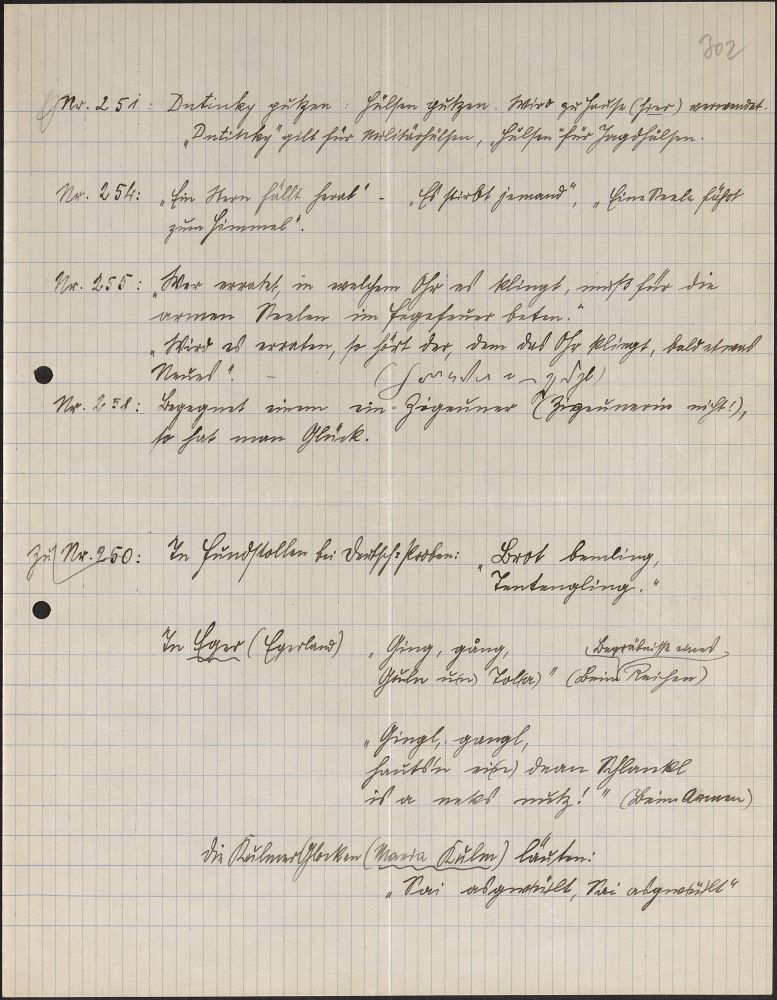 302
Nr. 251: Dutinky putzen: Hülsen putzen. Wird zu Hause (hier) verwendet.
"Dutinky" gilt für Militärhülsen, "Hülsen" für Jagdhülsen.
Nr. 254: "Ein Stern fällt herab" - "Es stirbt jemand", "Eine Seele fährt
zum Himmel".
Nr. 255: "Wer erratet, in welchem Ohr es klingt, muß für die
armen Seelen im Fegefeuer beten."
"Wird es erraten, so hört der, dem das Ohr klingt, bald etwas
Neues". -
Nr. 258: Begegnet einem ein Zigeuner (Zigeunerin nicht!),
so hat man Glück.
Zu Nr. 250: In Fundstollen bei Deutsch-Proben: "Brot bemling,
Tentengling."
In Eger (Egerland) "Ging, gång, Begräbnisse eines
(beim Reichen)
"Gingl, gangl,
hauts'n ei(n) dean Schlankl
is a neks nutz!" (beim Armen)
Die Kulmer Glocken (Maria Kulm) läuten: